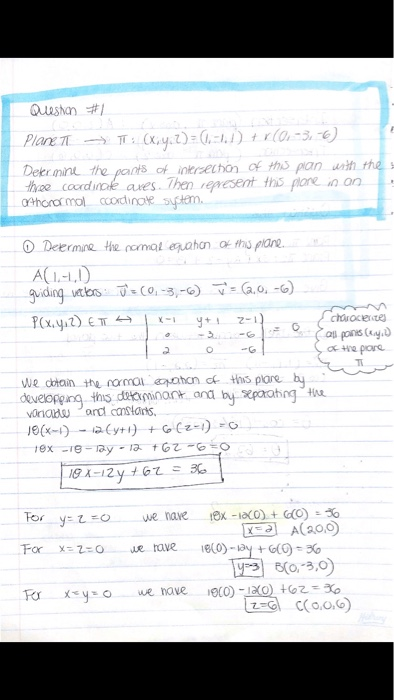 Question #1
Plane π → π: (x,y,z)=(1,-1,1) + r(0,-3,-6)
Determine the points of intersection of this plan with the 3
three coordinate axes. Then represent this plane in an
orthonormal coordinate system.
① Determine the normal equation of this plane.
A(1,-1,1)
guiding vectors: u⃗=(0,-3,-6) v⃗=(2,0,-6)
P(x,y,z) ∈ π ↔ | x-1 y+1 z-1 |
| 0 -3 -6 | = 0
| 2 0 -6 |
characterizes
all points (x,y,z)
of the plane
π
We obtain the normal equation of this plane by
developping this determinant and by separating the
variables and constants.
18(x-1) - 12(y+1) + 6(z-1) = 0
18x -18 -12y -12 +6z -6 = 0
18x-12y+6z = 36
For y=z=0 we have 18x -12(0) + 6(0) = 36
x=2 A(2,0,0)
For x=z=0 we have 18(0)-12y+6(0)=36
y=-3 B(0,-3,0)
For x=y=0 we have 18(0)-12(0)+6z=36
z=6 C(0,0,6)